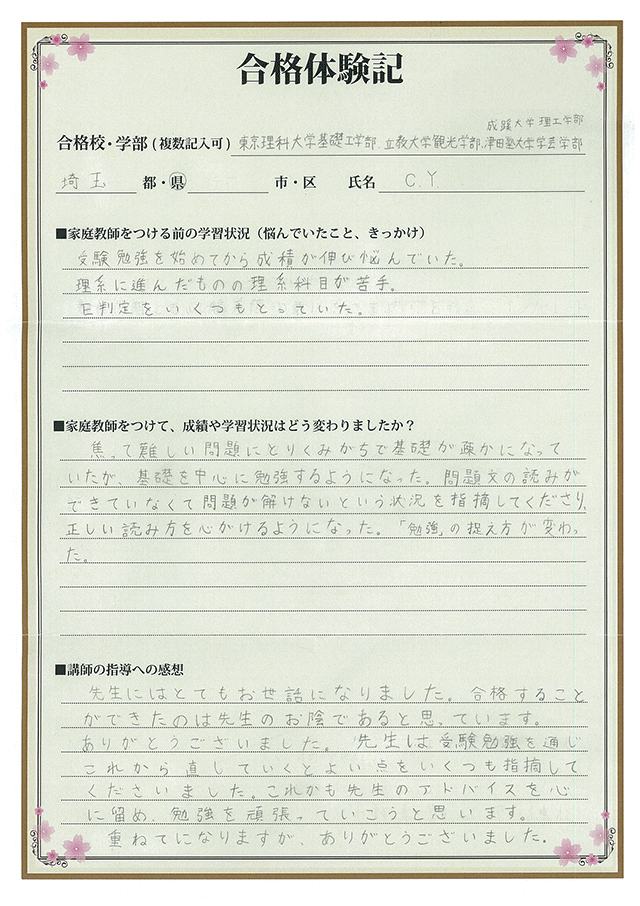 合格体験記
成蹊大学理工学部
合格校・学部(複数記入可) 東京理科大学基礎工学部、立教大学観光学部、津田塾大学学芸学部
埼玉 都・県 市・区 氏名 C.Y.
■家庭教師をつける前の学習状況(悩んでいたこと、きっかけ)
受験勉強を始めてから成績が伸び悩んでいた。
理系に進んだものの理系科目が苦手。
E判定をいくつもとっていた。
■家庭教師をつけて、成績や学習状況はどう変わりましたか?
焦って難しい問題にとりくみがちで基礎が疎かになって
いたが、基礎を中心に勉強するようになった。問題文の読みが
できていなくて問題が解けないという状況を指摘してくださり、
正しい読み方を心がけるようになった。「勉強」の捉え方が変わっ
た。
■講師の指導への感想
先生にはとてもお世話になりました。合格すること
ができたのは先生のお陰であると思っています。
ありがとうございました。先生は受験勉強を通じ
これから直していくとよい点をいくつも指摘して
くださいました。これからも先生のアドバイスを心
に留め、勉強を頑張っていこうと思います。
重ねてになりますが、ありがとうございました。